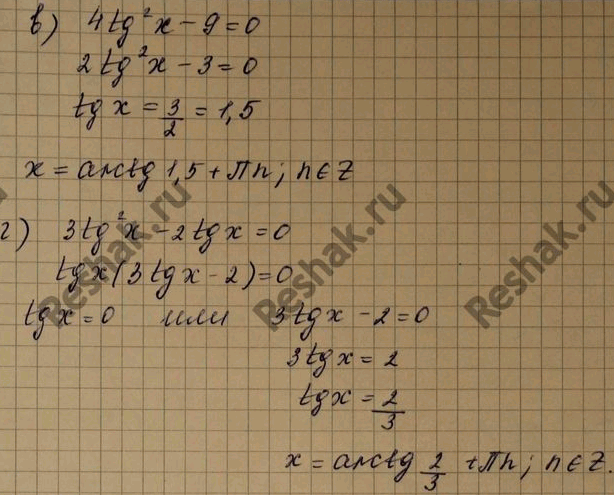 в) 4tg²x − 9 = 0
2tg²x − 3 = 0
tgx = 3/2 = 1,5
x = arctg 1,5 + Пn; n∈Z
г) 3tg²x − 2tgx = 0
tgx(3tgx − 2) = 0
tgx = 0 или 3tgx − 2 = 0
3tgx = 2
tgx = 2/3
x = arctg 2/3 + Пn; n∈Z.
Reshak.ru
Reshak.ru
Reshak.ru